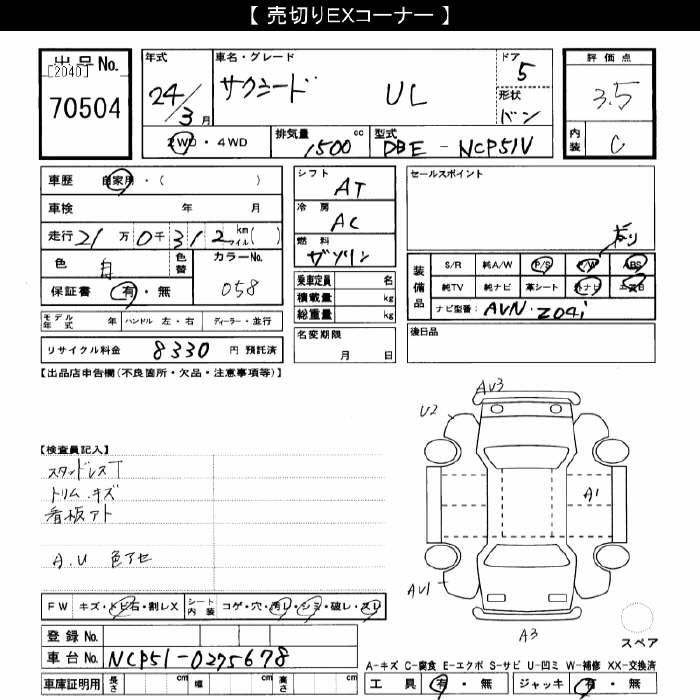 【 売切りEXコーナー 】
出品No.
[2040]
70504
年式
24/3月
車名・グレード
サクシード UL
ドア
5
形状
バン
評価点
3.5
内装
C
2WD・4WD
排気量 1500 cc
型式 DBE-NCP51V
車歴 自家用・( )
車検 年 月
走行 21万0千312 km マイル( )
色 白
色替
カラーNo.
058
保証書 有・無
モデル年式 年 ハンドル 左・右 ディーラー・並行
リサイクル料金 8330 円 預託済
シフト
AT
冷房
AC
燃料
ガソリン
乗車定員 名
積載量 kg
総重量 kg
名変期限
月 日
セールスポイント
有り
装備品
S/R 純A/W P/S P/W ABS
純TV 純ナビ 革シート 外ナビ エアB
ナビ型番: AVN-Z04i
後日品
【出品店申告欄(不良箇所・欠品・注意事項等)】
【検査員記入】
スタッドレスT
トリム.キズ
看板アト
A.U 色アセ
AU3
U2
A1
AU1
A3
スペア
FW キズ・トビ石・割レX
シート内装 コゲ・穴・汚レ・シミ・破レ・スレ
登録No.
車台No. NCP51-0275678
車庫証明用 長さ cm 幅 cm 高さ cm
A-キズ C-腐食 E-エクボ S-サビ U-凹ミ W-補修 XX-交換済
工具 有・無 ジャッキ 有・無